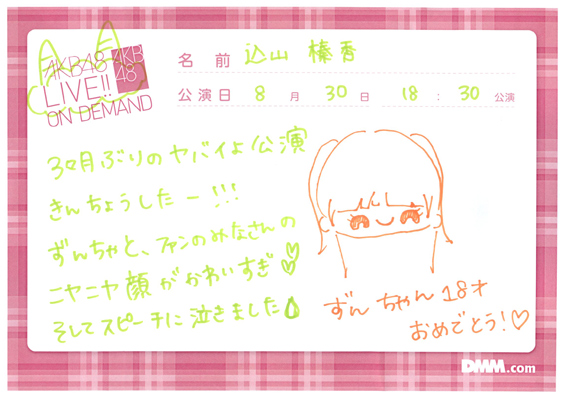 AKB48
LIVE!!
ON DEMAND
AKB
48
名 前 込山 榛香
公演日 8 月 30 日 18 : 30 公演
3ヶ月ぶりのヤバイよ公演
きんちょうしたー!!!
ずんちゃと、ファンのみなさんの
ニヤニヤ顔がかわいすぎ♡
そしてスピーチに泣きました
ずんちゃん18才
おめでとう!♡
DMM.com